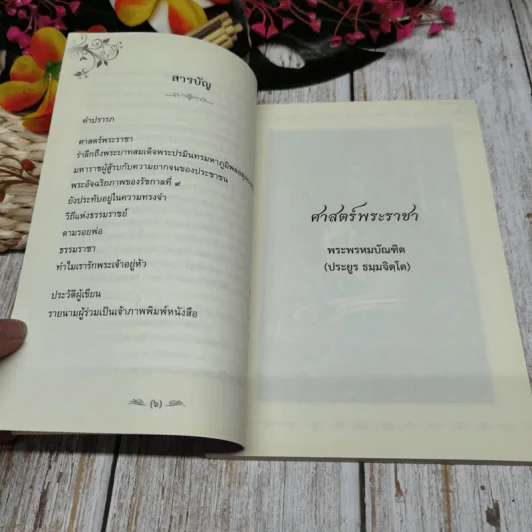 สารบัญ
คำปรารภ
ศาสตร์พระราชา
รำลึกถึงพระบาทสมเด็จพระปรมินทรมหาภูมิพลอดุล
มหาราชผู้สู้รบกับความยากจนของประชาชน
พระอัจฉริยภาพของรัชกาลที่ ๙
ยังประทับอยู่ในความทรงจำ
วิถีแห่งธรรมราชย์
ตามรอยพ่อ
ธรรมราชา
ทำไมเรารักพระเจ้าอยู่หัว
ประวัติผู้เขียน
รายนามผู้ร่วมเป็นเจ้าภาพพิมพ์หนังสือ
(๖)
ศาสตร์พระราชา
พระพรหมบัณฑิต
(ประยูร ธมฺมจิตฺโต)